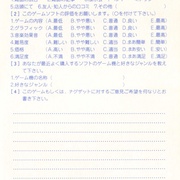 5.店頭にて 6.友人・知人からの口コミ 7.その他
【2】このゲームソフトの評価をお願いします。(○を付けて下さい。)
1.ゲームの内容 (A.最低 B.やや悪い C.普通 D.良い E.最高)
2.グラフィック (A.最低 B.やや悪い C.普通 D.良い E.最高)
3.音楽効果音 (A.最低 B.やや悪い C.普通 D.良い E.最高)
4.難易度 (A.難しい B.やや難しい C.普通 D.やや簡単 E.簡単)
5.価格 (A.高い B.やや高い C.普通 D.やや安い E.安い)
6.満足度 (A.不満 B.やや不満 C.普通 D.やや満足 E.満足)
【3】あなたが最近よく購入するソフトのゲーム機と好きなジャンルを教えて
下さい。
1.ゲーム機の名前
2.好きなジャンル
【4】このゲームもしくは、ナグザットに対するご意見ご希望を何なりとお
書き下さい。